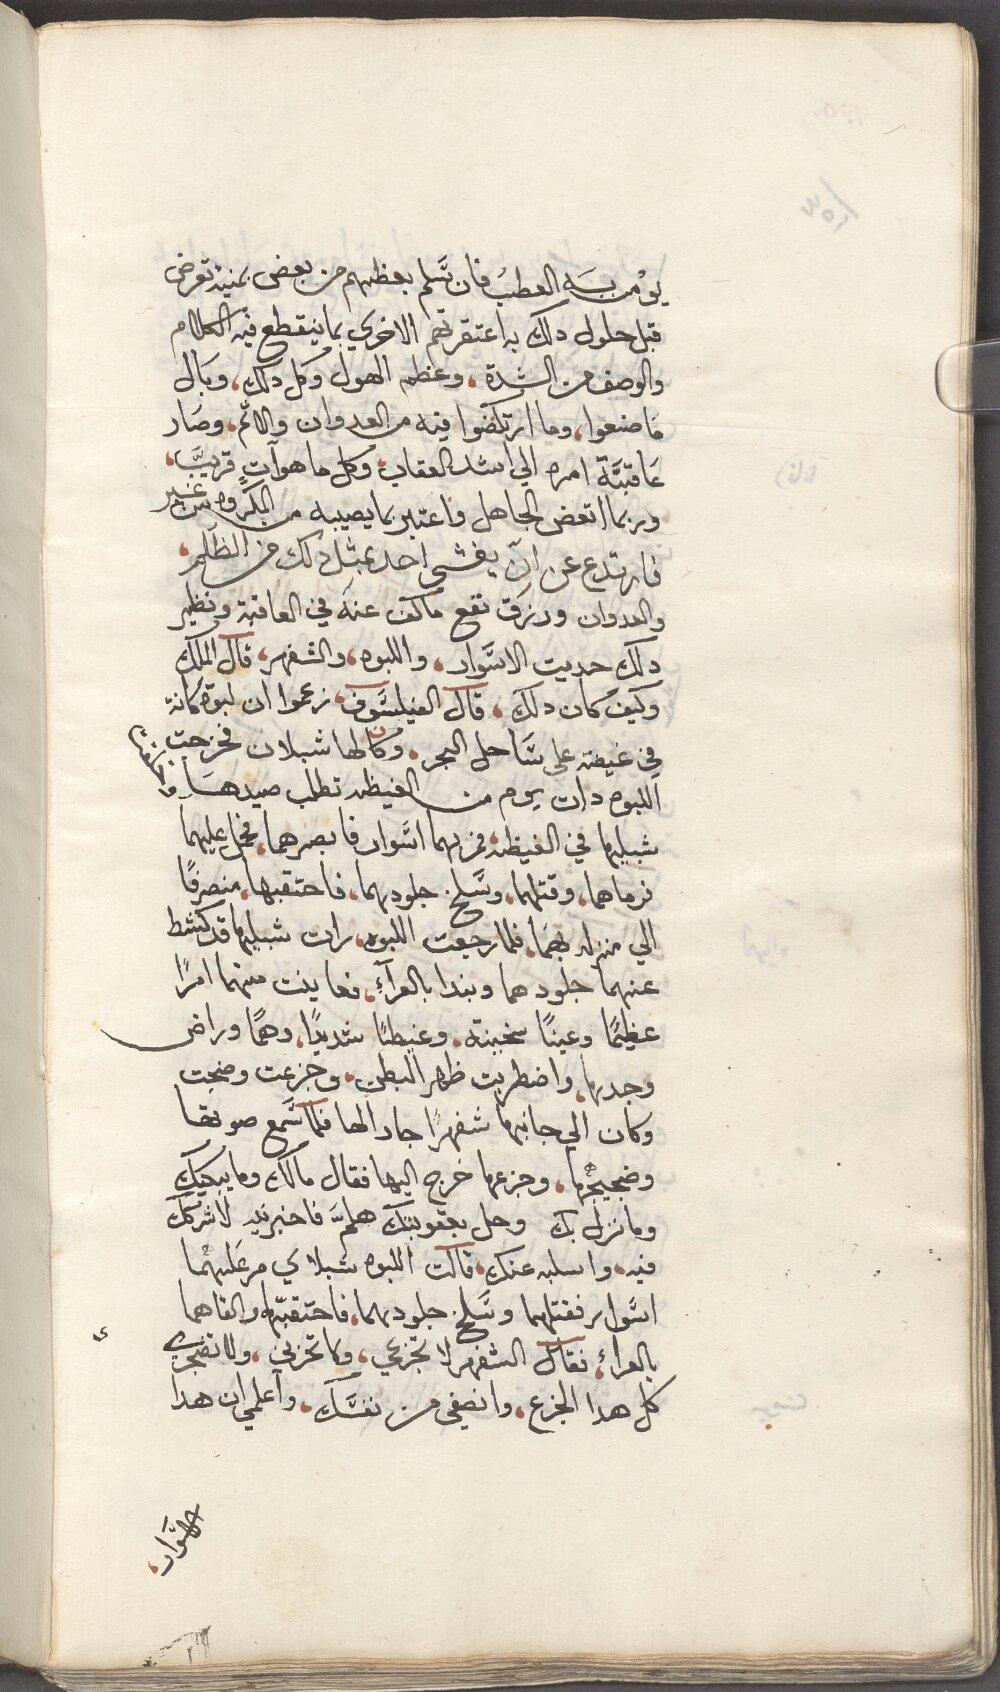 يومن بسه العطب فان سَّلم بعظهم من بعض بمنية تعرض
قبل حلول دلك به اعتقرتهم الاخري بما ينقطع فيه الكلام
والوصف من الشدة، وعظم الهول وكل دلك، وبال
مَا صنعوا، وما ارتكضوا فيه من العدوان والاثم، وصَار
عَاقبَّة امره الي اشد العقاب، وكل ما هو آتٍ قريبَّ،
وربما اتعض الجاهل واعتبر بما يصيبه من المكروه من غير
فارتدع عن ان يغشي احد بمثل دلك من الظلم،
والعدوان ورزق نفع ما كف عنه في العاقبة ونظير
دلك حديت الاسَّوار، واللبوه، والشغهر، قال الملك
وكيف كان دلك، قال الفيلسَّوف، زعموا ان لبوة كانة
في غيضة علي سَّاحل البحر، وكان لها شبلان فخرجت
اللبوه دات يوم من الغيظه تطلب صيدهسَا
شبليها في الغيظه فمر بهما اسَّوار فابصرهما، فحمل عليهما
فرماهما، وقتلهما، وسَّلخ جلودهما، فاحتقبها، منصرفًا
الي منزله بهمَا، فلما رجعت اللبوه، رات شبليها قد كشط
عنهما جلودهما ونبدا بالعرآءِ، فعاينت منهما امرًا
عظيمًا وعينًا سخينة، وغيظًا شديدًا، وهمًا وراض
وجدها، واضطربت ظهر البطن، وجزعت وضجت
وكان الي جانبها شغهرًا جار الها فلما سَّمع صوتها
وضجيجها، وجزعها خرج اليها فقال مالك وما يبكيك
وما نزل بك وحل بعقوبتك هلمَّ فاخبرنيه لاشركك
فيه، واسليه عنك، قالت اللبوه شبلاي مر عليهما
اسَّوار فقتلهما وسَّلخ جلودهما، فاحتقبها، والقاهما
بالعراء، فقال الشغهر لا تجزعي، ولا تحزني، ولا تضجري
كل هدا الجزع، وانصفي من نفسَّك، واعلمي ان هدا